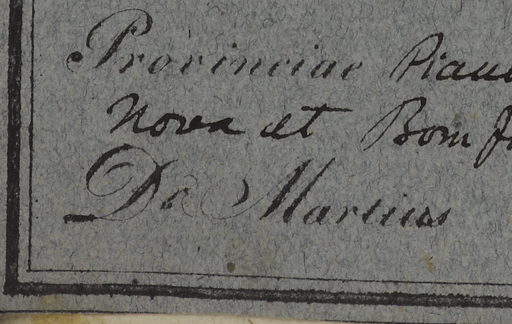 Provinciae Piau
Nova et Bom J
Dr Martius